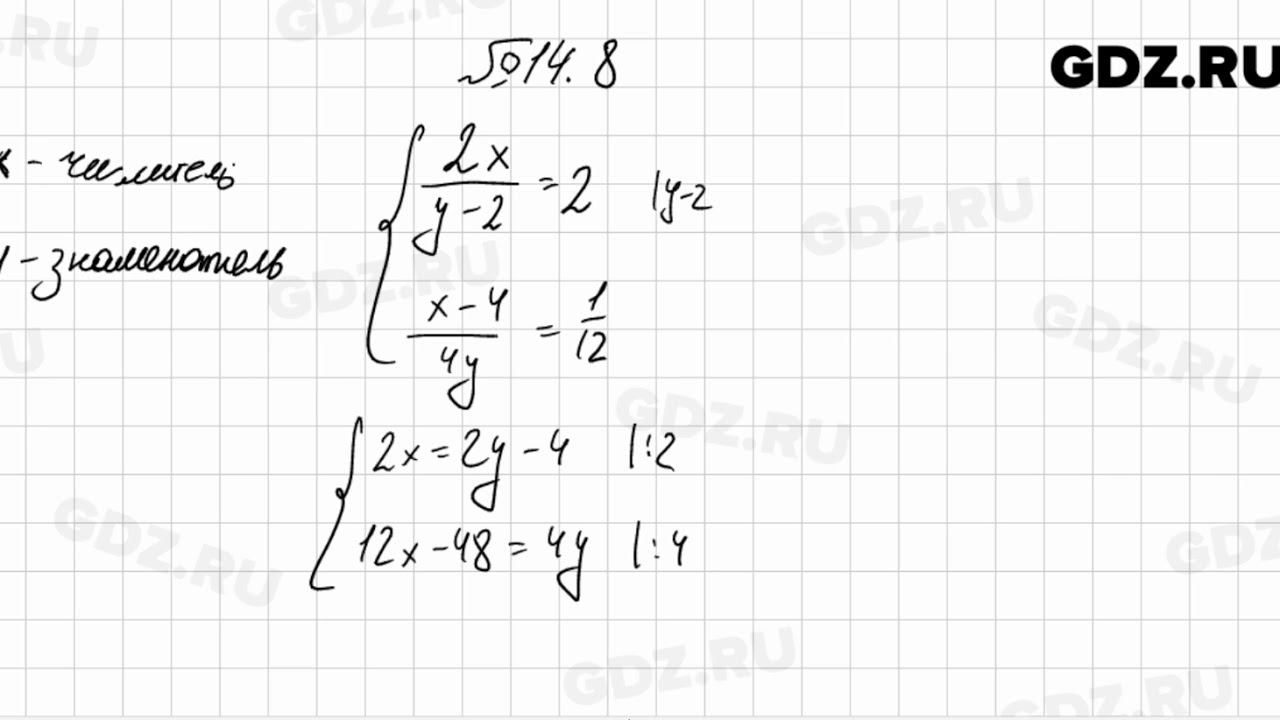 №14.8
GDZ.RU
x - числитель
y - знаменатель
{ 2x/(y-2) = 2 |y-2
(x-4)/4y = 1/12
{ 2x = 2y - 4 |:2
12x - 48 = 4y |:4
GDZ.RU
GDZ.RU
GDZ.RU
GDZ.RU
GDZ.RU
GDZ.RU
GDZ.RU
GDZ.RU